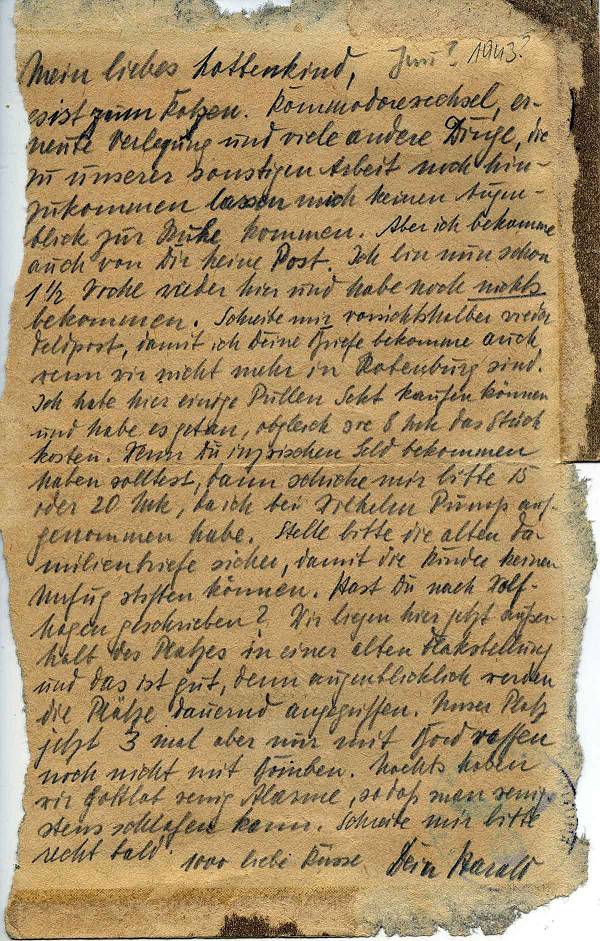 Mein liebes Lottenkind, Juni? 1943?
es ist zum Kotzen. Kommodorewechsel, er-
neute Verlegung und viele andere Dinge, die
zu unserer sonstigen Arbeit noch hin-
zukommen lassen mich keinen Augen-
blick zur Ruhe kommen. Aber ich bekomme
auch von Dir keine Post. Ich bin nun schon
1 1/2 Woche wieder hier und habe noch nichts
bekommen. Schreibe mir vorsichtshalber wieder
Feldpost, damit ich Deine Briefe bekomme auch
wenn wir nicht mehr in Rotenburg sind.
Ich habe hier einige Pullen Sekt kaufen können
und habe es getan, obgleich sie 8 Mk das Stück
kosten. Wenn Du inzwischen Geld bekommen
haben solltest, dann schicke mir bitte 15
oder 20 Mk, da ich bei Wilhelm Pump auf-
genommen habe. Stelle bitte die alten Fa-
milienbriefe sicher, damit die Kinder keinen
Unfug stiften können. Hast Du nach Wolf-
hagen geschrieben? Wir liegen hier jetzt außer-
halb des Platzes in einer alten Flakstellung
und das ist gut, denn augenblicklich werden
die Plätze dauernd angegriffen. Unser Platz
jetzt 3 mal aber nur mit Bordwaffen
noch nicht mit Bomben. Nachts haben
wir Gottlob wenig Alarme, sodaß man wenig-
stens schlafen kann. Schreibe mir bitte
recht bald.
1000 liebe Küsse Dein Harald